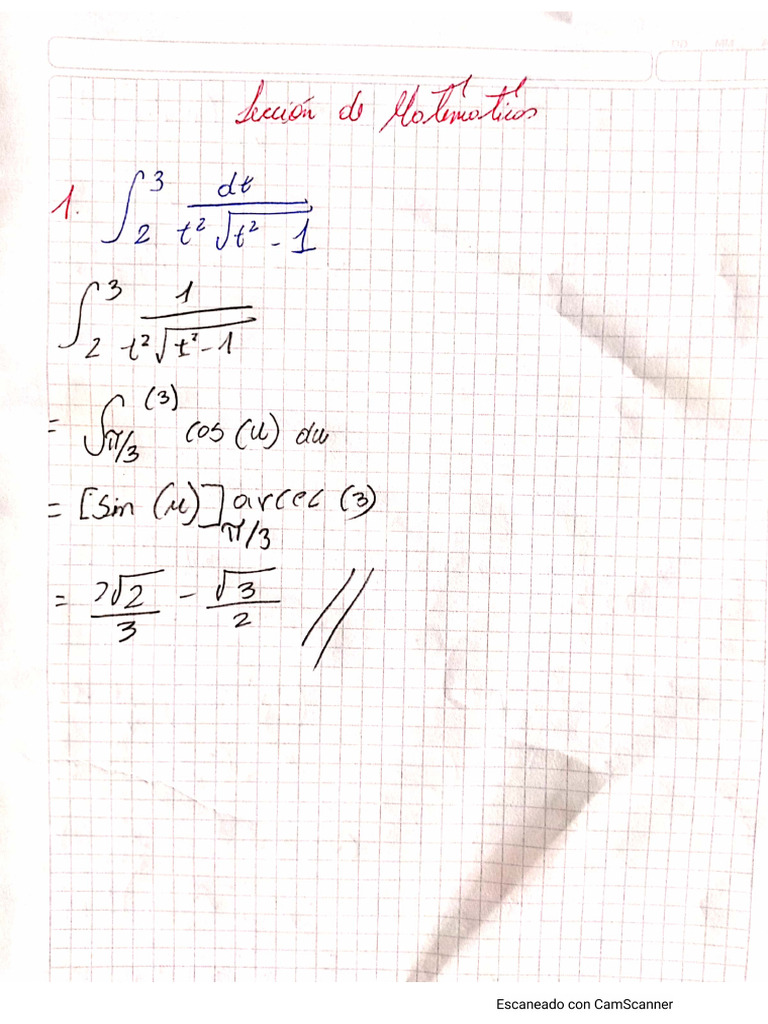 Lección de Matemáticas
1. ∫₂³ dt / (t² √(t² - 1))
∫₂³ 1 / (t² √(t² - 1))
= ∫_{π/3}^{(3)} cos (u) du
= [sin (u)]_{π/3}^{arcec (3)}
= 2√2 / 3 - √3 / 2 //
Escaneado con CamScanner